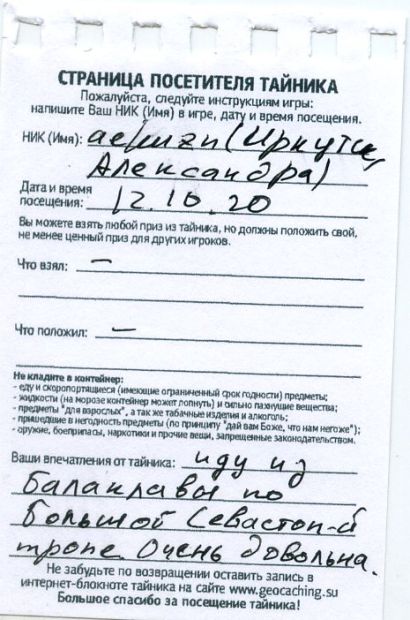 СТРАНИЦА ПОСЕТИТЕЛЯ ТАЙНИКА
Пожалуйста, следуйте инструкциям игры:
напишите Ваш НИК (Имя) в игре, дату и время посещения.
НИК (Имя): (Иркутск,
Александра)
Дата и время
посещения: 12.10.20
Вы можете взять любой приз из тайника, но должны положить свой,
не менее ценный приз для других игроков.
Что взял: —
Что положил: —
Не кладите в контейнер:
- еду и скоропортящиеся (имеющие ограниченный срок годности) предметы;
- жидкости (на морозе контейнер может лопнуть) и сильно пахнущие вещества;
- предметы "для взрослых", а так же табачные изделия и алкоголь;
- пришедшие в негодность предметы (по принципу "дай вам Боже, что нам негоже");
- оружие, боеприпасы, наркотики и прочие вещи, запрещенные законодательством.
Ваши впечатления от тайника: иду из
Балаклавы по
Большой Севастоп-й
тропе. Очень довольна.
Не забудьте по возвращении оставить запись в
интернет-блокноте тайника на сайте www.geocaching.su
Большое спасибо за посещение тайника!